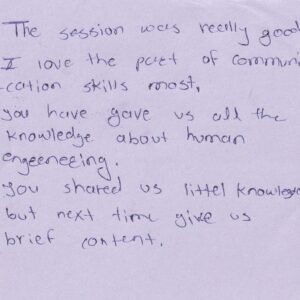 The session was really good
I love the part of communi
-cation skills most,
you have gave us all the
knowledge about human
engeeneering.
you shared us littel knowledge
but next time give us
brief content.